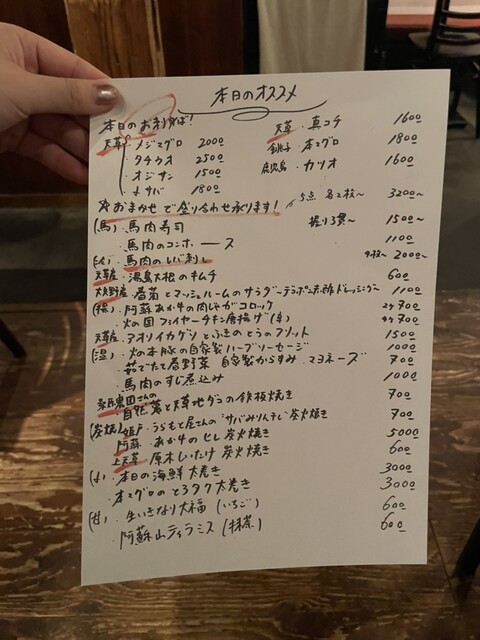 本日のオススメ
本日のお刺身は?
天草 メジマグロ 2000
タチウオ 2500
オジサン 1500
サバ 1800
天草 真コチ 1600
銚子 本マグロ 1800
鹿児島 カツオ 1600
☆おまかせで盛り合わせ承ります! 5点 各2枚〜 3200〜
(馬)・馬肉寿司 握り3貫〜 1500〜
・馬肉のコンボース 1100
(冷)・馬肉のレバ刺し 2000〜
天草産・湯島大根のキムチ 600
大矢野産・春菊とマッシュルームのサラダ 1100
(揚)・阿蘇あか牛の肉じゃがコロッケ 2ヶ700
・火の国ファイヤーチキン唐揚げ 700
天草産・アオリイカゲソとふきのとうのフリット 1500
(温)・火の本豚の自家製ハーブソーセージ 1000
・茹でたて春野菜 自家製からすみマヨネーズ 700
・馬肉のすじ煮込み 1000
・自然薯と天草地ダコの鉄板焼き 700
(炭焼)・うらもと屋さんの"サバみりん干し"炭火焼き 700
阿蘇・あか牛のヒレ 炭火焼き 5000
上天草・原木しいたけ 炭火焼き 600
・本日の海鮮太巻き 3000
・本マグロのとろタク太巻き 3000
(甘)・生いきなり大福(いちご) 600
・阿蘇山ティラミス(抹茶) 600